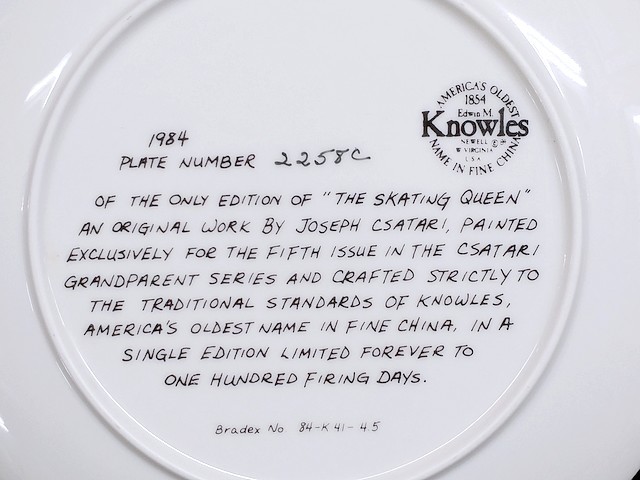 AMERICA'S OLDEST
1854
Edwin M.
Knowles
NEWELL
W VIRGINIA
U.S.A.
NAME IN FINE CHINA
1984
PLATE NUMBER 2258C
OF THE ONLY EDITION OF "THE SKATING QUEEN"
AN ORIGINAL WORK BY JOSEPH CSATARI, PAINTED
EXCLUSIVELY FOR THE FIFTH ISSUE IN THE CSATARI
GRANDPARENT SERIES AND CRAFTED STRICTLY TO
THE TRADITIONAL STANDARDS OF KNOWLES,
AMERICA'S OLDEST NAME IN FINE CHINA, IN A
SINGLE EDITION LIMITED FOREVER TO
ONE HUNDRED FIRING DAYS.
Bradex No 84-K41-4.5